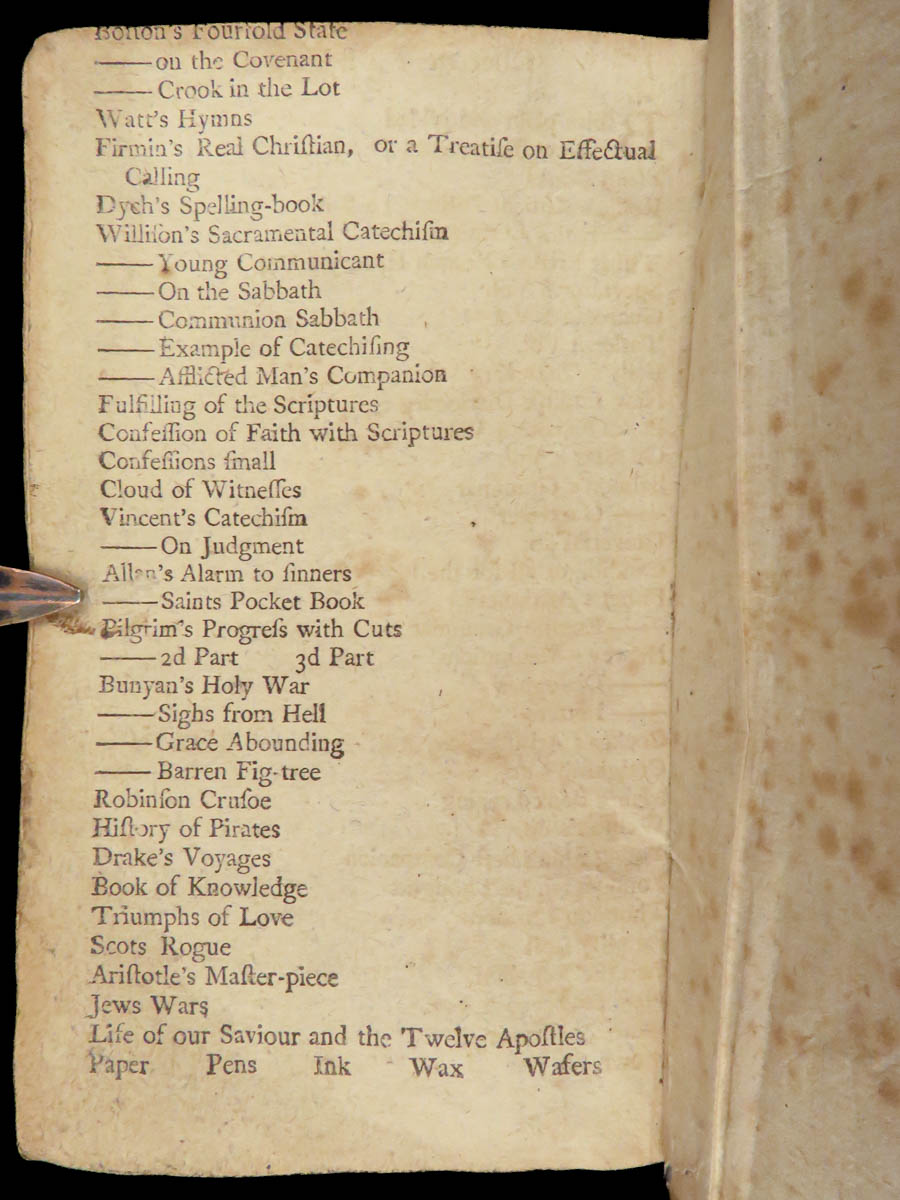 Boston's Fourfold State
——on the Covenant
——Crook in the Lot
Watt's Hymns
Firmin's Real Chriſtian, or a Treatiſe on Effectual
Calling
Dych's Spelling-book
Williſon's Sacramental Catechiſm
——Young Communicant
——On the Sabbath
——Communion Sabbath
——Example of Catechiſing
——Afflicted Man's Companion
Fulfilling of the Scriptures
Confeſſion of Faith with Scriptures
Confeſſions ſmall
Cloud of Witneſſes
Vincent's Catechiſm
——On Judgment
Allen's Alarm to ſinners
——Saints Pocket Book
Pilgrim's Progreſs with Cuts
——2d Part 3d Part
Bunyan's Holy War
——Sighs from Hell
——Grace Abounding
——Barren Fig-tree
Robinſon Cruſoe
Hiſtory of Pirates
Drake's Voyages
Book of Knowledge
Triumphs of Love
Scots Rogue
Ariſtotle's Maſter-piece
Jews Wars
Life of our Saviour and the Twelve Apoſtles
Paper Pens Ink Wax Wafers